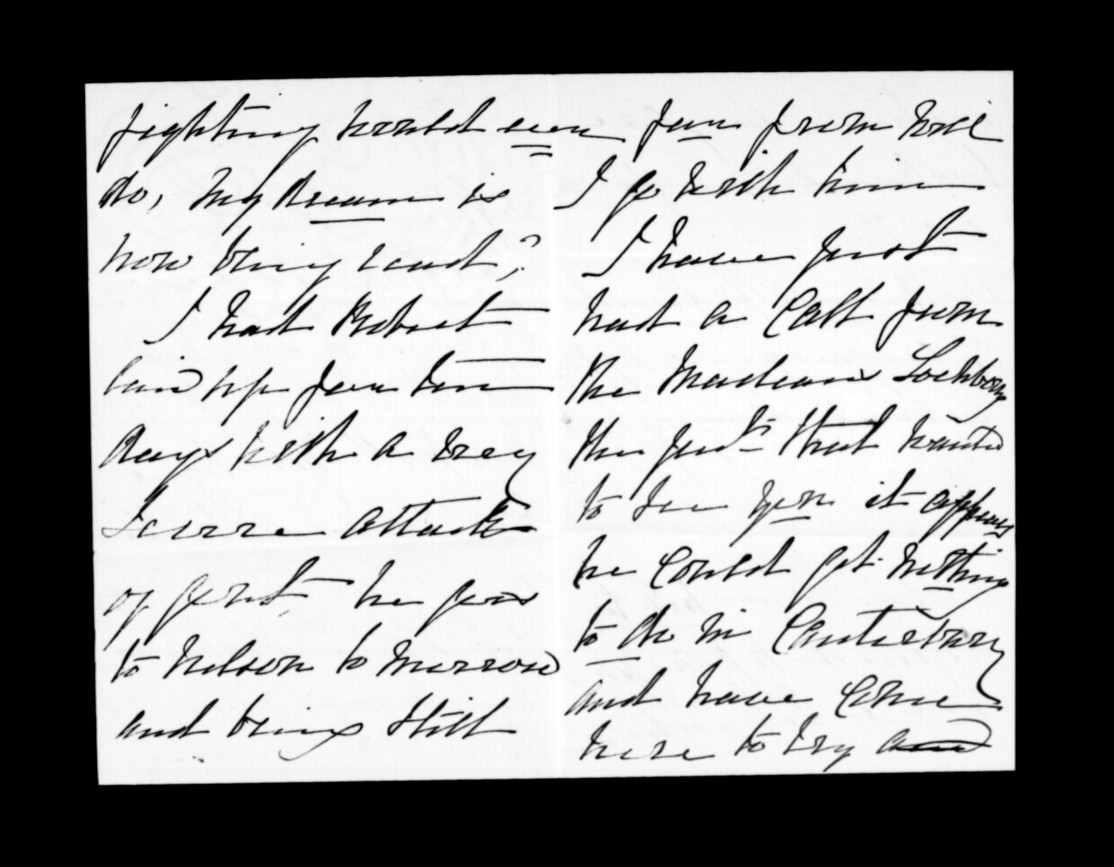 fighting would even
do, My dream is
now being read,?
I had Robert
laid up for ten
days with a very
severe attack
of gout, he goes
to Nelson to morrow
and being still
far from well
I go with him
I have just
had a Call from
the Macleans Lochbuy
the that wanted
to see you it appears
he could get nothing
to do in Canterbury
and have Come
here to try and